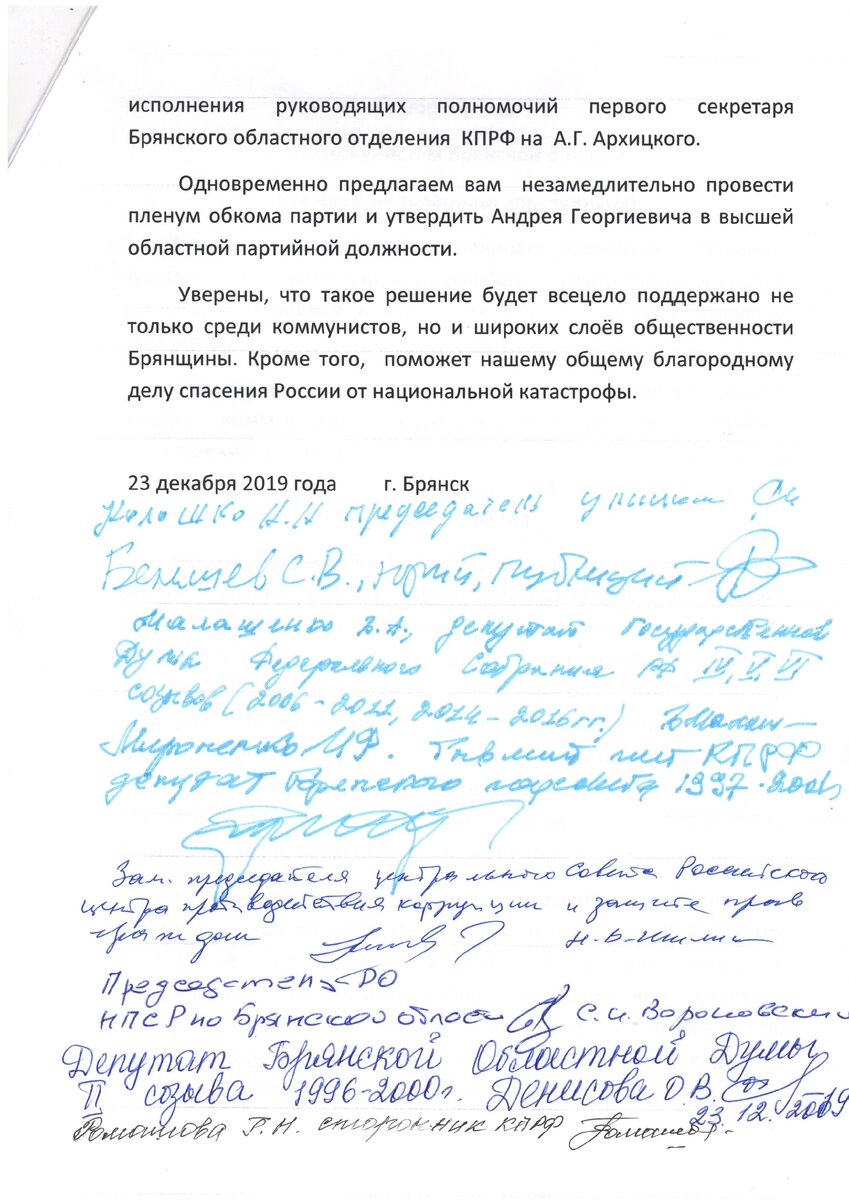 исполнения руководящих полномочий первого секретаря
Брянского областного отделения КПРФ на А.Г. Архицкого.
Одновременно предлагаем вам незамедлительно провести
пленум обкома партии и утвердить Андрея Георгиевича в высшей
областной партийной должности.
Уверены, что такое решение будет всецело поддержано не
только среди коммунистов, но и широких слоёв общественности
Брянщины. Кроме того, поможет нашему общему благородному
делу спасения России от национальной катастрофы.
23 декабря 2019 года г. Брянск
председатель
С.В., юрист, публицист
Малашенко В.А., депутат Государственной
Думы Федерального Собрания РФ IV, V, VI
созывов (2006-2011, 2014-2016 гг.)
Мироненко КПРФ
депутат Брянского 1997-2001
Зам. председателя центрального Совета Российского
центра противодействия коррупции и защите прав
граждан
Председатель РО
НПСР по Брянской области С.И.
Депутат Брянской Областной Думы
II созыва 1996-2000г. Денисова О.В.
23.12.2019
Ромашова Г.Н. сторонник КПРФ